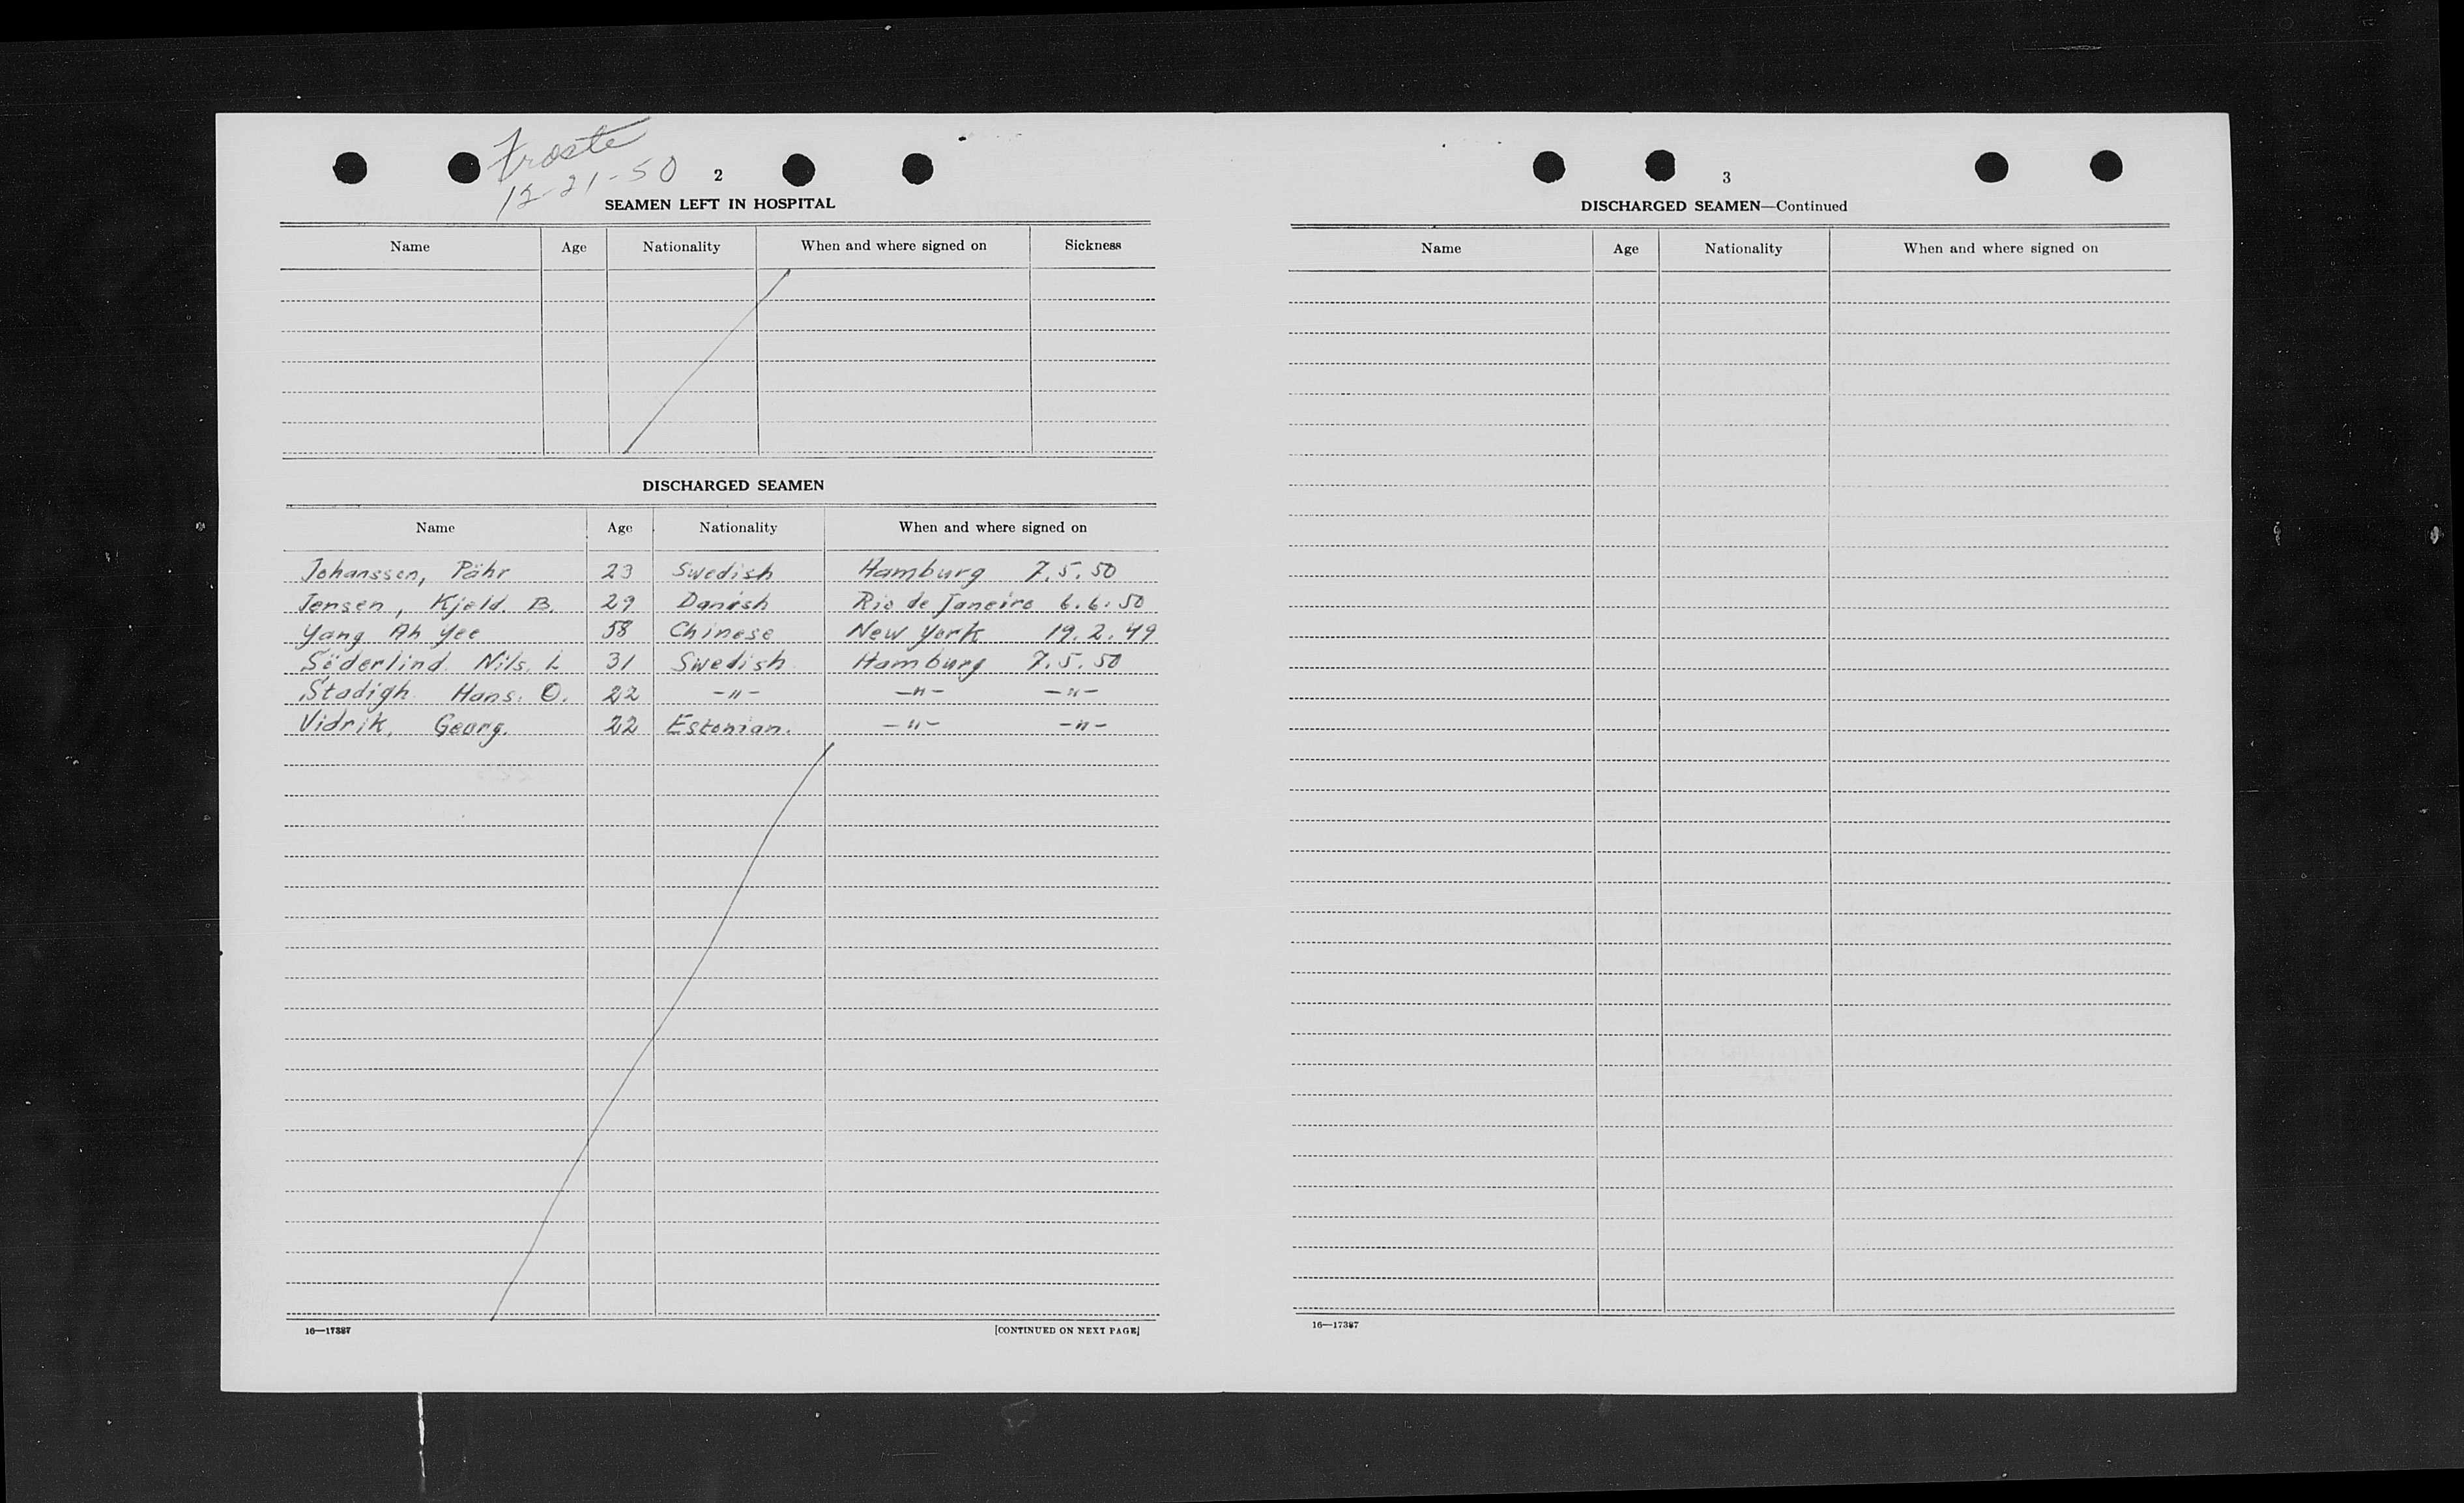 Froste
12-21-50
2
SEAMEN LEFT IN HOSPITAL
Name Age Nationality When and where signed on Sickness
DISCHARGED SEAMEN
Name Age Nationality When and where signed on
Johansson, Pähr 23 Swedish Hamburg 7.5.50
Jensen, Kjeld. B. 29 Danish Rio de Janeiro 6.6.50
Yang Ah Yee 58 Chinese New York 19.2.49
Söderlind. Nils. L 31 Swedish Hamburg 7.5.50
Stadigh. Hans. O. 22 -"- -"- -"-
Vidrik, Georg. 22 Estonian. -"- -"-
16—17387
[CONTINUED ON NEXT PAGE]
3
DISCHARGED SEAMEN—Continued
Name Age Nationality When and where signed on
16—17387